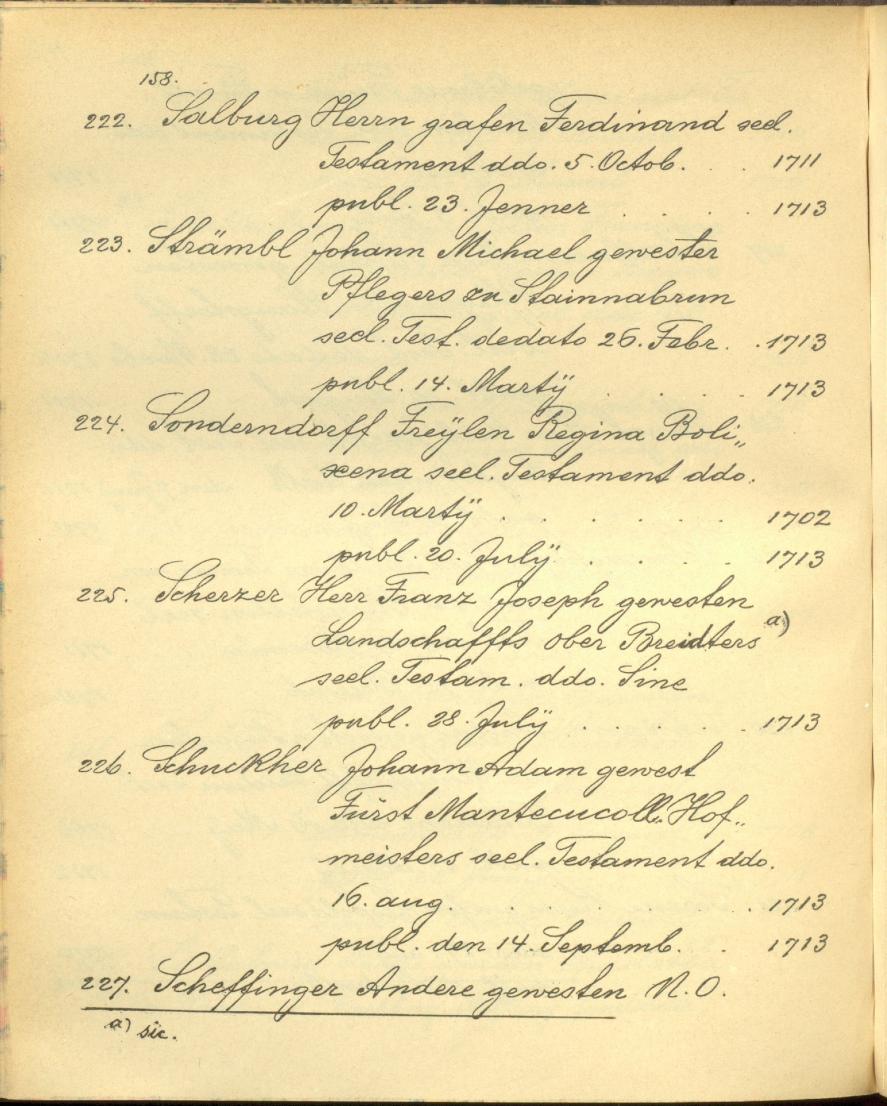 158.
222. Salburg Herrn grafen Ferdinand seel.
Testament ddo. 5. Octob. . . 1711
publ. 23. Jenner . . . . 1713
223. Strämbl Johann Michael gewester
Pflegers zu Stainnabrun
seel. Test. dedato 26. Febr. . 1713
publ. 14. Martÿ . . . . 1713
224. Sonderndorff Freÿlen Regina Boli„
xena seel. Testament ddo.
10. Martÿ . . . . . . 1702
publ. 20. Julÿ . . . . . 1713
225. Scherzer Herr Franz Joseph gewesten
Landschaffts ober Breidters a)
seel. Testam. ddo. Sine
publ. 28. Julÿ . . . . . 1713
226. Schuckher Johann Adam gewest
Fürst Mantecucoll. Hof„
meisters seel. Testament ddo.
16. aug. . . . . . . 1713
publ. den 14. Septemb. . . 1713
227. Scheffinger Andere gewesten N.O.
a) sic.